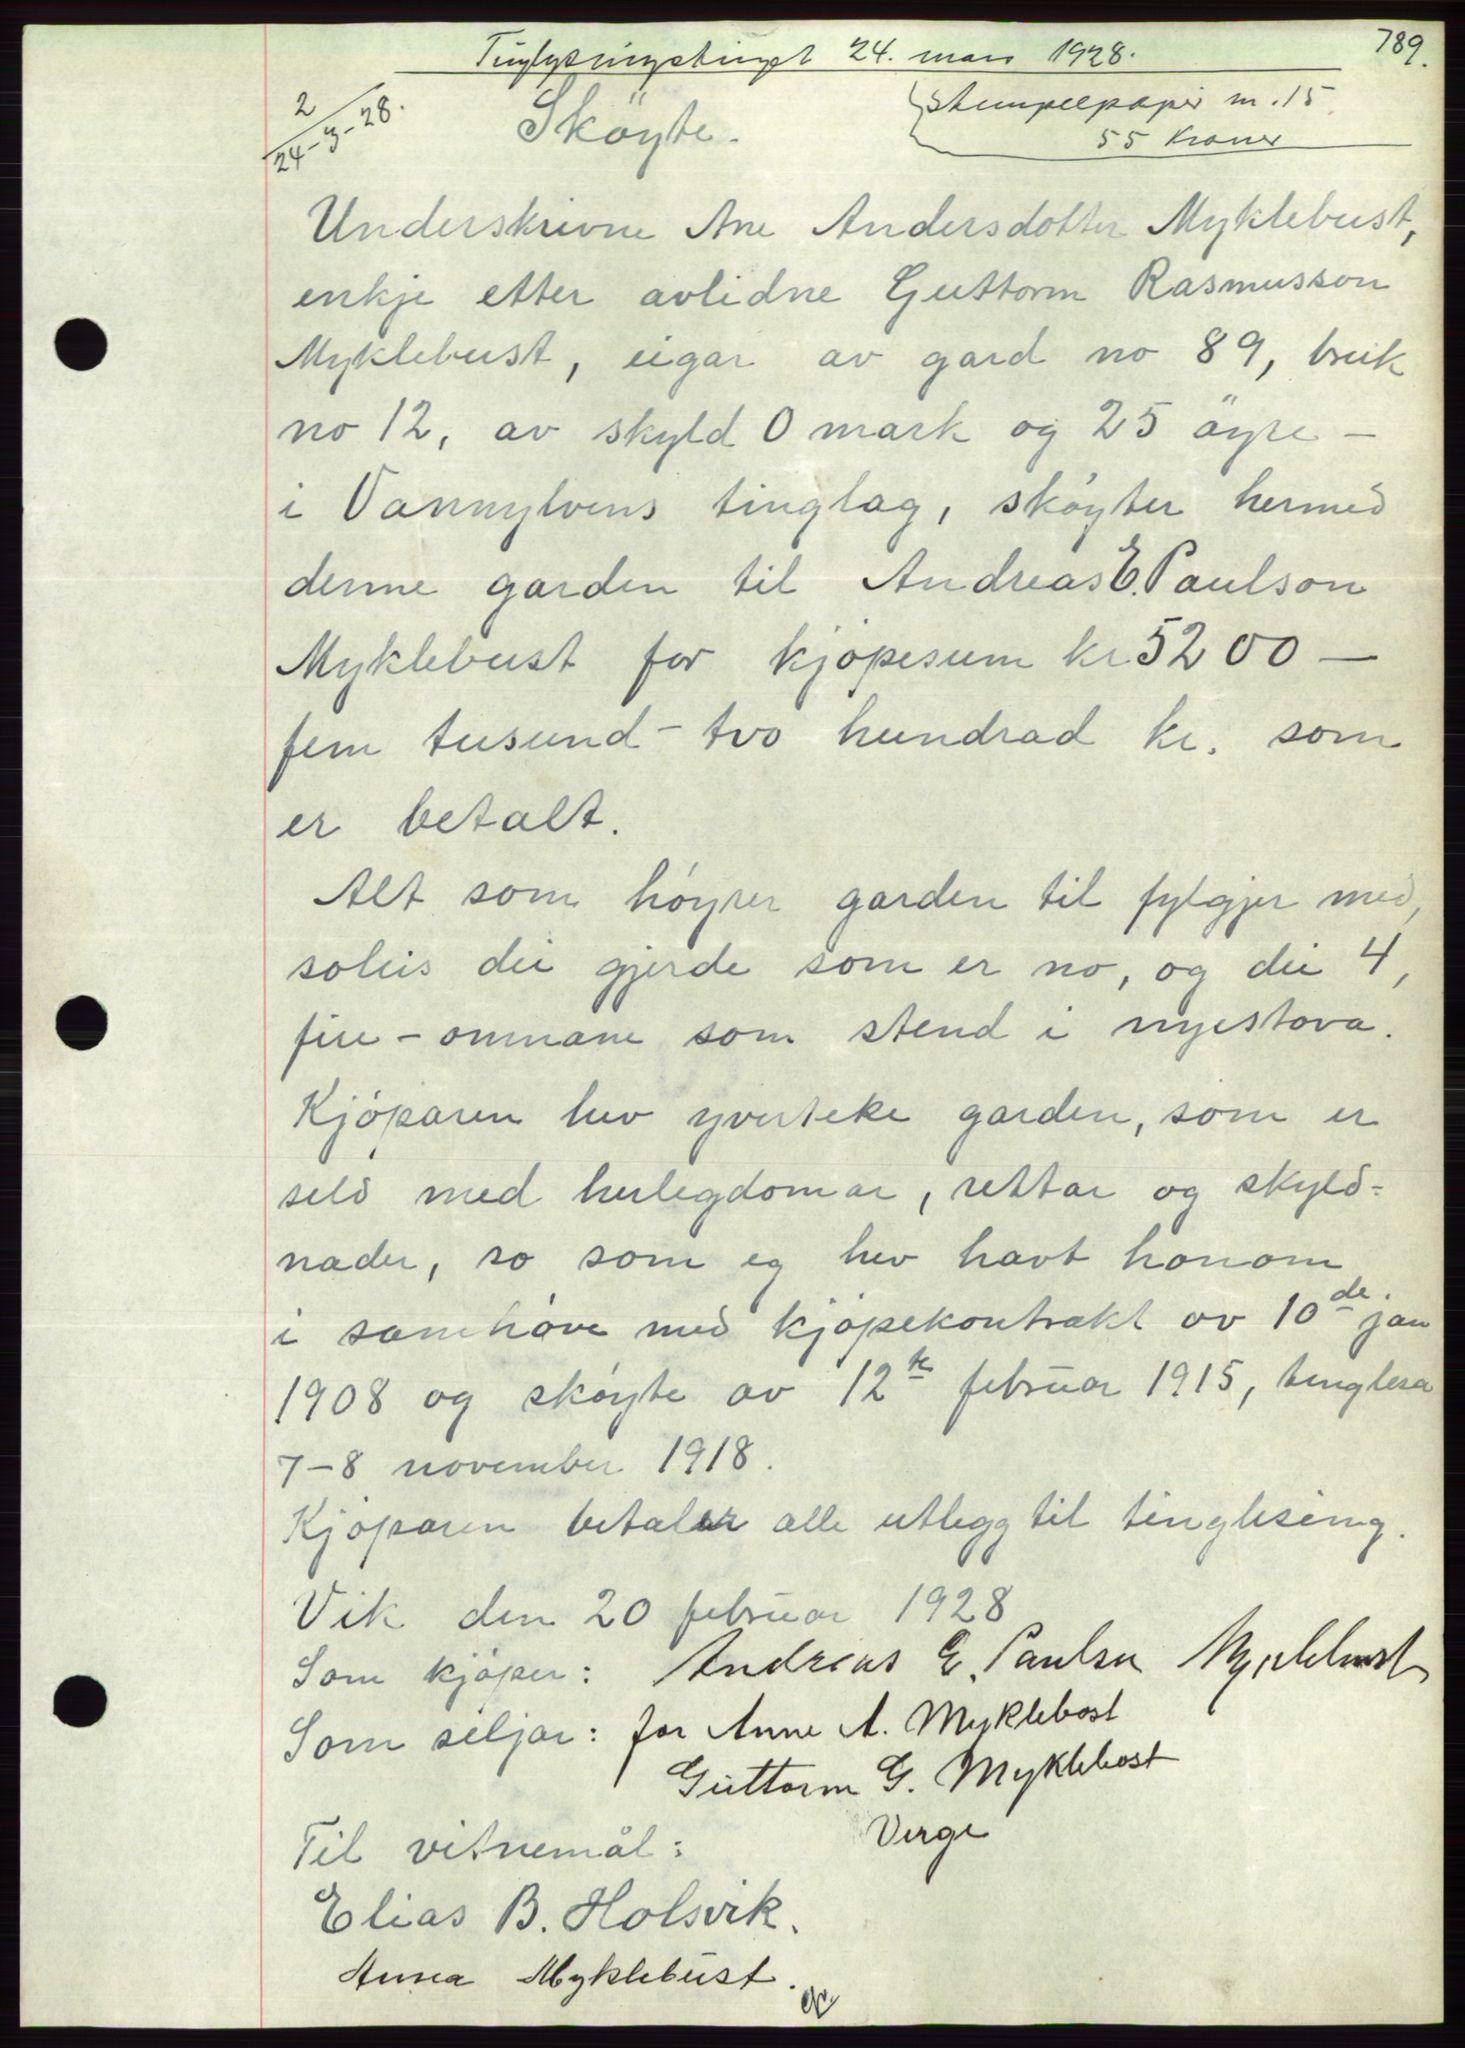 Tinglysningstinget 24. mars 1928.
789.
2
24-3-28.
Stempelpapir m. 15
55 kroner
Sköyte.
Underskrivne Ane Andersdotter Myklebust,
enkje etter avlidne Guttorm Rasmusson
Myklebust, eigar av gard no 89, bruk
no 12, av skyld 0 mark og 25 öyre -
i Vannylvens tinglag, sköyter hermed
denne garden til Andreas E. Paulson
Myklebust for kjöpesum kr 5200 —
fem tusund - tvo hundrad kr. som
er betalt.
Alt som höyrer garden til fylgjer med,
soleis dei gjerde som er no, og dei 4,
fire - omnane som stend i nyestova.
Kjöparen hev yverteke garden, som er
seld med herlegdomar, rettar og skyld-
nader, so som eg hev havt honom
i samhöve med kjöpekontrakt av 10de. jan
1908 og sköyte av 12te februar 1915, tinglesa
7-8 november 1918.
Kjöparen betaler alle utlegg til tinglesing.
Vik den 20 februar 1928
Som kjöper: Andreas E. Paulsen Myklebust
Som seljar: for Anne A. Myklebost
Guttorm G. Myklebost
Verge
Til vitnemål:
Elias B. Holsvik.
Anna Myklebust.